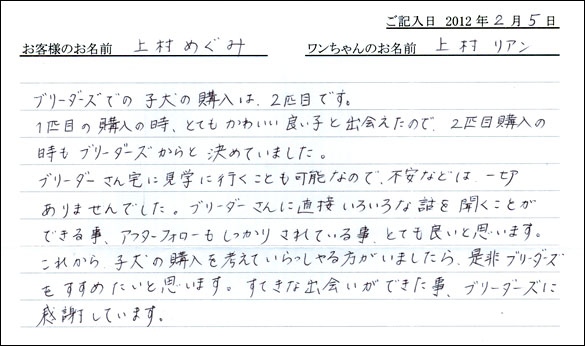 ご記入日 2012年2月5日
お客様のお名前 上村めぐみ ワンちゃんのお名前 上村リアン
ブリーダーズでの子犬の購入は、2匹目です。
1匹目の購入の時、とてもかわいい良い子と出会えたので、2匹目購入の
時もブリーダーズからと決めていました。
ブリーダーさん宅に見学に行くことも可能なので、不安などは、一切
ありませんでした。ブリーダーさんに直接いろいろな話を聞くことが
できる事、アフターフォローもしっかりされている事、とても良いと思います。
これから、子犬の購入を考えていらっしゃる方がいましたら、是非ブリーダーズ
をすすめたいと思います。すてきな出会いができた事、ブリーダーズに
感謝しています。